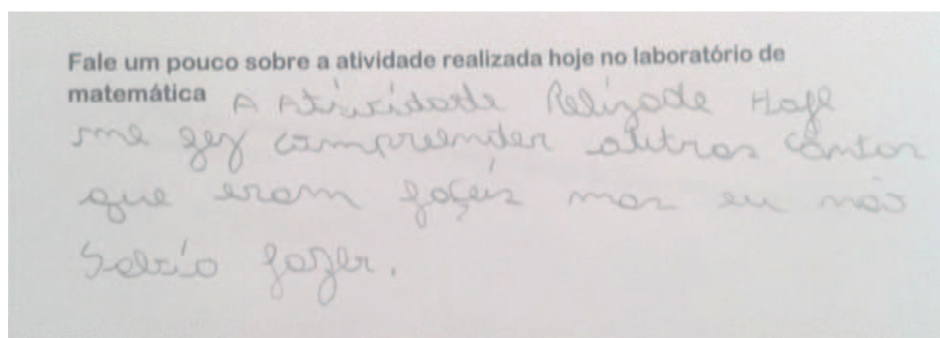 Fale um pouco sobre a atividade realizada hoje no laboratório de
matemática A Atividade Relizade Hoje
me fez compreender outras contas
que eram façeis mas eu não
Sabío fazer.